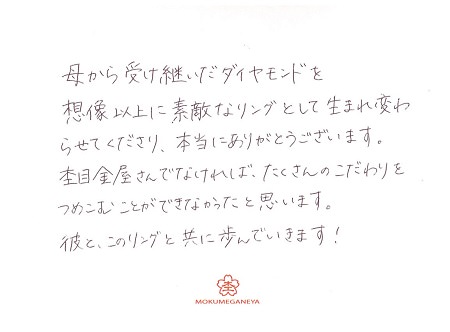 母から受け継いだダイヤモンドを
想像以上に素敵なリングとして生まれ変わ
らせてくださり、本当にありがとうございます。
杢目金屋さんでなければ、たくさんのこだわりを
つめこむことができなかったと思います。
彼と、このリングと共に歩んでいきます!
杢
MOKUMEGANEYA